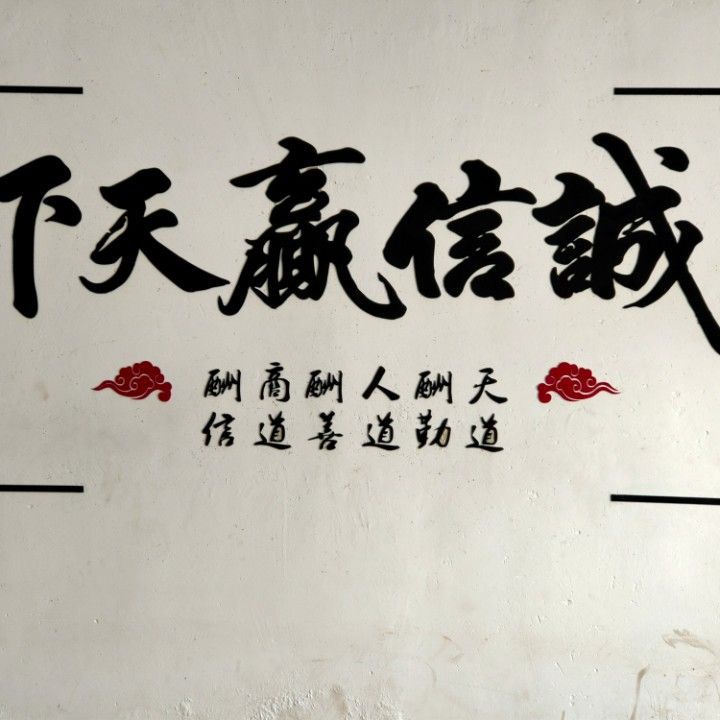 誠信贏天下
天道酬勤人道酬善商道酬信